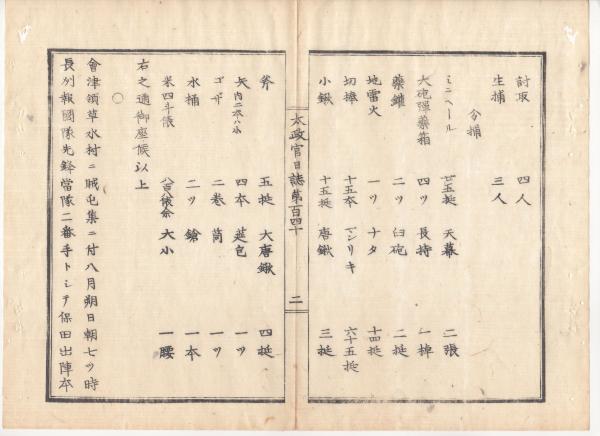 討取　四人
生捕　三人
分捕
ミニヘール　廿五挺　天幕　二張
大砲彈藥箱　四ツ　長持　一棹
藥鑵　二ツ　臼砲　二挺
地雷火　一ツ　ナタ　十四挺
切捧　十五本　マンリキ　六十五挺
小鍬　十五挺　唐鍬　三挺
太政官日誌第百四十　二
斧　五挺　大唐鍬　四挺
矢　四本　莚包　一ツ
ゴザ　二巻　筒　一ツ
水桶　二ツ　鎗　一本
米四斗俵　大小　一腰
右之通御座候以上
〇
會津領草水村ニ賊屯集ニ付八月朔日朝七ツ時
長州報國隊先鋒當隊二番手トシテ保田出陣本